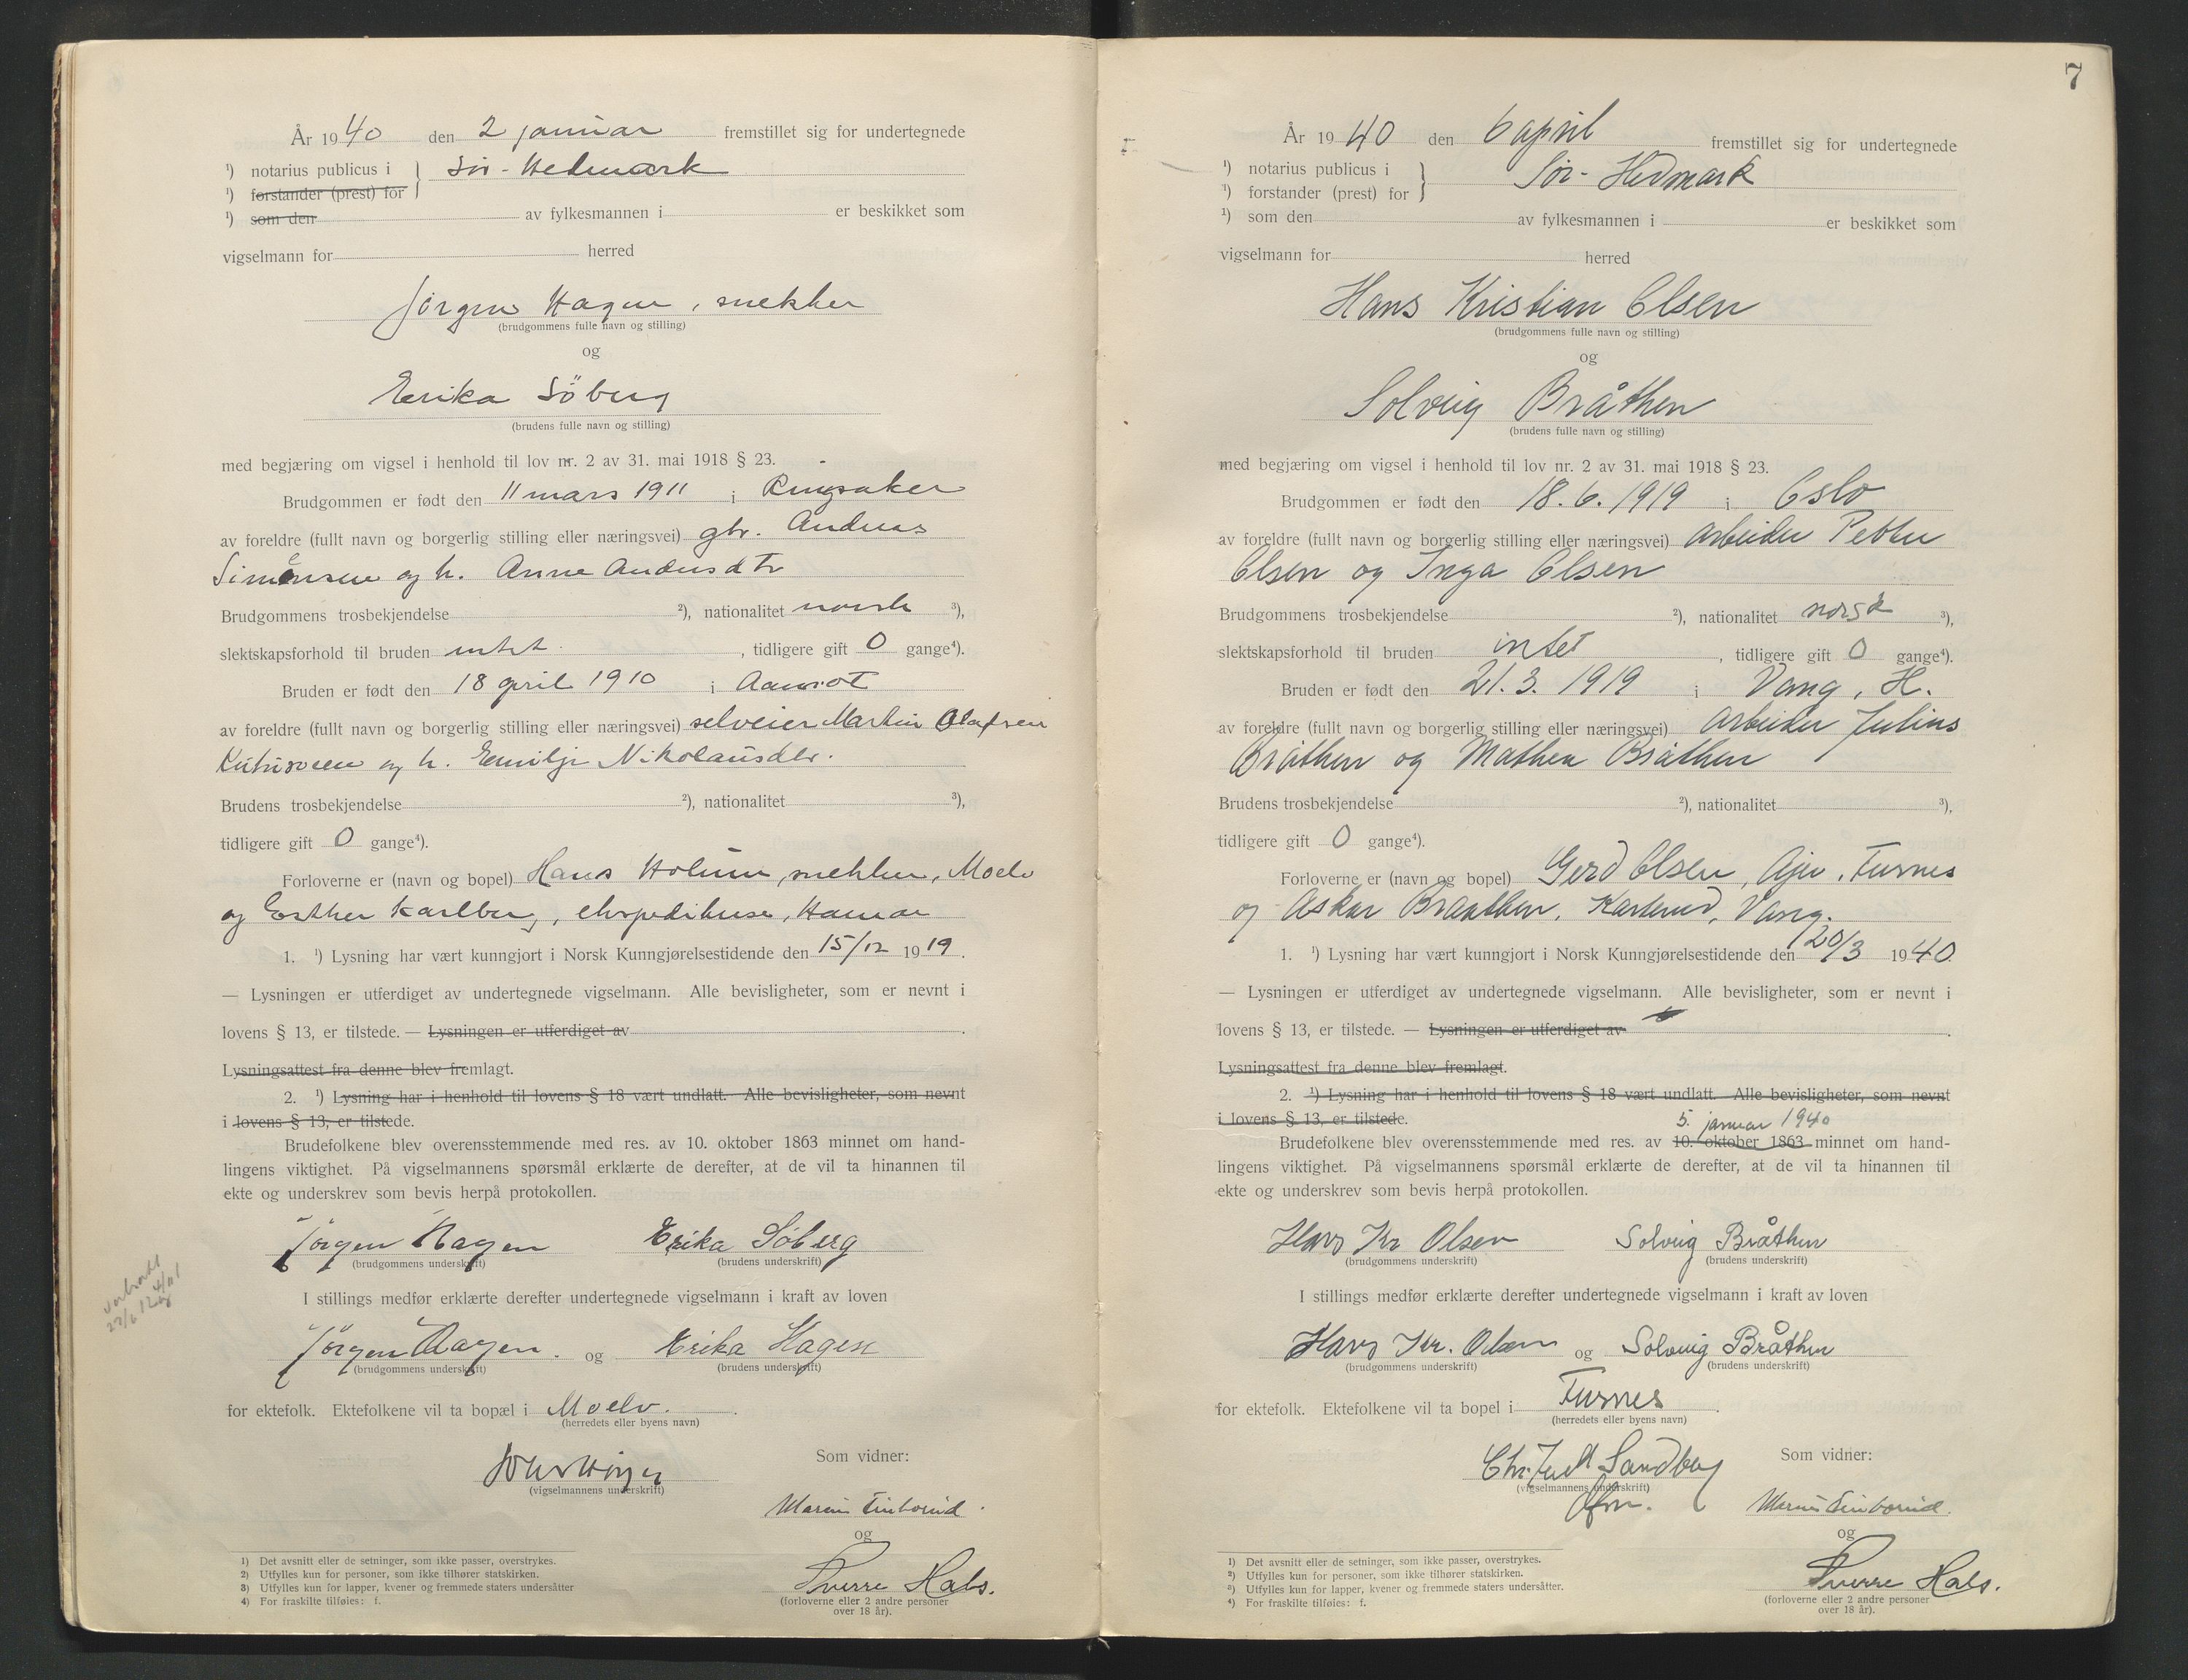 År 1940 den 2 januar fremstillet sig for undertegnede
¹) notarius publicus i } Sör-Hedmark
¹) forstander (prest) for
¹) som den av fylkesmannen i er beskikket som
vigselmann for herred
Jörgen Hagen, snekker
(brudgommens fulle navn og stilling)
og
Erika Söberg
(brudens fulle navn og stilling)
med begjæring om vigsel i henhold til lov nr. 2 av 31. mai 1918 § 23.
Brudgommen er født den 11 mars 1911 i Ringsaker
av foreldre (fullt navn og borgerlig stilling eller næringsvei) gbr. Andreas
Simensen og h. Anne Andersdtr
Brudgommens trosbekjendelse ²), nationalitet norsk ³),
slektskapsforhold til bruden intet , tidligere gift 0 gange⁴).
Bruden er født den 18 april 1910 i Aamot
av foreldre (fullt navn og borgerlig stilling eller næringsvei) selveier Martin Olafsen
og h. Emilje Nikolausdtr.
Brudens trosbekjendelse ²), nationalitet ³),
tidligere gift 0 gange⁴).
Forloverne er (navn og bopel) Hans Holum, snekker, Moelv
og Esther Karlberg, ekspeditrise, Hamar
1. ¹) Lysning har vært kunngjort i Norsk Kunngjørelsestidende den 15/12 1919.
— Lysningen er utferdiget av undertegnede vigselmann. Alle bevisligheter, som er nevnt i
lovens § 13, er tilstede. — Lysningen er utferdiget av .
Lysningsattest fra denne blev fremlagt.
2. ¹) Lysning har i henhold til lovens § 18 vært undlatt. Alle bevisligheter, som nevnt
i lovens § 13, er tilstede.
Brudefolkene blev overensstemmende med res. av 10. oktober 1863 minnet om hand-
lingens viktighet. På vigselmannens spørsmål erklærte de derefter, at de vil ta hinannen til
ekte og underskrev som bevis herpå protokollen.
Jörgen Hagen Erika Söberg
(brudgommens underskrift) (brudens underskrift)
I stillings medfør erklærte derefter undertegnede vigselmann i kraft av loven
Jörgen Hagen. og Erika Hagen
(brudgommens underskrift) (brudens underskrift)
for ektefolk. Ektefolkene vil ta bopæl i Moelv.
(herredets eller byens navn)
Som vidner:
(vigselmannens underskrift)
og
Sverre Hals.
(forloverne eller 2 andre personer
over 18 år).
1) Det avsnitt eller de setninger, som ikke passer, overstrykes.
2) Utfylles kun for personer, som ikke tilhører statskirken.
3) Utfylles kun for lapper, kvener og fremmede staters undersåtter
4) For fraskilte tilføies: f.
7
År 1940 den 6 april fremstillet sig for undertegnede
¹) notarius publicus i } Sör-Hedmark
¹) forstander (prest) for
¹) som den av fylkesmannen i er beskikket som
vigselmann for herred
Hans Kristian Olsen
(brudgommens fulle navn og stilling)
og
Solveig Bråthen
(brudens fulle navn og stilling)
med begjæring om vigsel i henhold til lov nr. 2 av 31. mai 1918 § 23.
Brudgommen er født den 18.6.1919 i Oslo
av foreldre (fullt navn og borgerlig stilling eller næringsvei) arbeider Petter
Olsen og Inga Olsen
Brudgommens trosbekjendelse ²), nationalitet norsk ³),
slektskapsforhold til bruden intet , tidligere gift 0 gange⁴).
Bruden er født den 21.3.1919 i Vang, H.
av foreldre (fullt navn og borgerlig stilling eller næringsvei) arbeider Julius
Bråthen og Mathea Bråthen
Brudens trosbekjendelse ²), nationalitet ³),
tidligere gift 0 gange⁴).
Forloverne er (navn og bopel) Gerd Olsen, Ajer, Furnes
og Askar Braathen, Vang.
1. ¹) Lysning har vært kunngjort i Norsk Kunngjørelsestidende den 20/3 1940.
— Lysningen er utferdiget av undertegnede vigselmann. Alle bevisligheter, som er nevnt i
lovens § 13, er tilstede. — Lysningen er utferdiget av .
Lysningsattest fra denne blev fremlagt.
2. ¹) Lysning har i henhold til lovens § 18 vært undlatt. Alle bevisligheter, som nevnt
i lovens § 13, er tilstede.
5. januar 1940
Brudefolkene blev overensstemmende med res. av 10. oktober 1863 minnet om hand-
lingens viktighet. På vigselmannens spørsmål erklærte de derefter, at de vil ta hinannen til
ekte og underskrev som bevis herpå protokollen.
Hans Kr Olsen Solveig Bråthen
(brudgommens underskrift) (brudens underskrift)
I stillings medfør erklærte derefter undertegnede vigselmann i kraft av loven
Hans Kr. Olsen og Solveig Bråthen
(brudgommens underskrift) (brudens underskrift)
for ektefolk. Ektefolkene vil ta bopel i Furnes.
(herredets eller byens navn)
Sandberg Som vidner:
(vigselmannens underskrift)
og
Sverre Hals.
(forloverne eller 2 andre personer
over 18 år).
¹) Det avsnitt eller de setninger, som ikke passer, overstrykes.
²) Utfylles kun for personer, som ikke tilhører statskirken.
³) Utfylles kun for lapper, kvener og fremmede staters undersåtter.
⁴) For fraskilte tilføies: f.